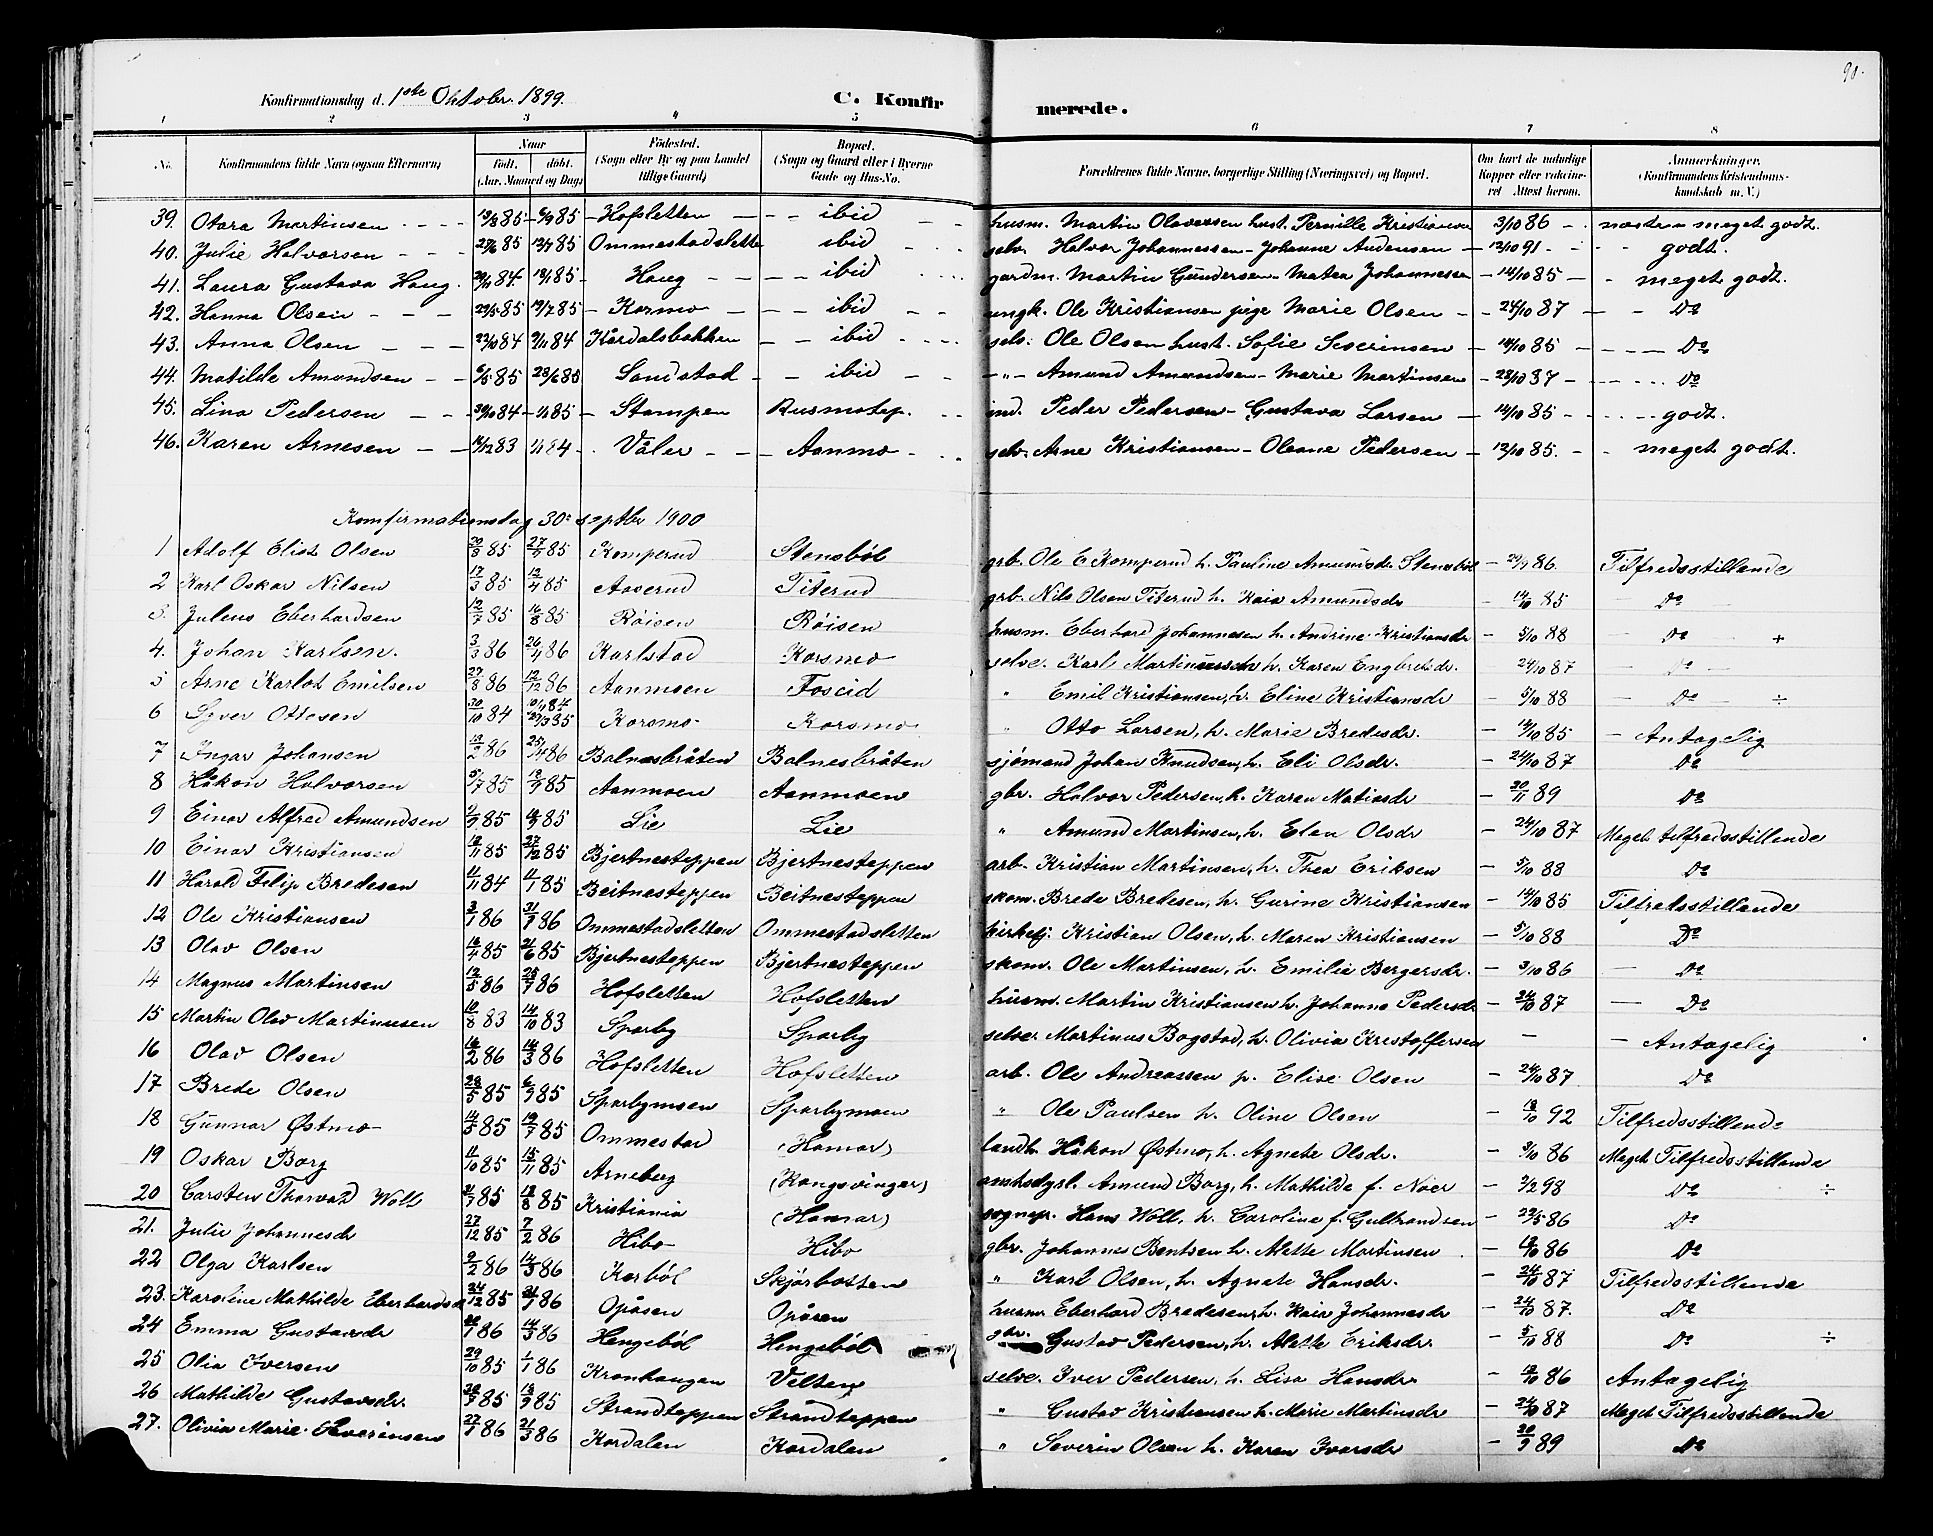 90.
Konfirmationsdag d. 1ste Oktober 1899.
C. Konfirmerede.
1 2 3 4 5 6 7 8
No. Konfirmandens fulde Navn (ogsaa Efternavn) Naar født, døbt. (Aar, Maaned og Dag) Fødested. (Sogn eller By og paa Landet tillige Gaard) Bopæl. (Sogn og Gaard eller i Byerne Gade og Hus-No. Forældrenes fulde Navne, borgerlige Stilling (Næringsvei) og Bopæl. Om havt de naturlige Kopper eller vaksineret Attest herom. Anmærkninger. (Konfirmandens Kristendomskundskab m. V.)
39. Otara Martinsen 85 85 Hofsletten ibid husm. Martin Olavesen hust. Pernille Kristiansen 3/10 86 næsten meget godt.
40. Julie Halvorsen 85 85 Ommestadslette ibid selv. Halvor Johannessen - Johanne Andersen 13/10 91 godt.
41. Laura Gustava Haug 84 85 Haug ibid gardm. Martin Gundersen - Matea Johannesen 14/10 85 meget godt.
42. Hanna Olsen 85 85 Kormo ibid ungk. Ole Kristiansen pige Marie Olsen 24/10 87 Do
43. Anna Olsen 22/10 84 84 Kårdalsbakken ibid selv. Ole Olsen hust. Sofie Severinsen 14/10 85 Do
44. Matilde Amundsen 6/5 85 28/6 85 Sandstad ibid -"- Amund Amundsen - Marie Martinsen Do
45. Lina Pedersen 84 1/1 85 Stampen Rusmotep. ind. Peder Pedersen - Gustava Larsen 14/10 85 godt.
46. Karen Arnesen 83 1/1 84 Våler Aanmo selv. Arne Kristiansen - Oleane Pedersen 12/10 85. meget godt.
Konfirmationsdag 30. septbr 1900
1 Adolf Eliot Olsen 20/3 85 85 Komperud Stensböl grb. Ole E Komperud h. Pauline Amundsdr Stensböl 86. Tilfredsstillende
2 Karl Oskar Nilsen 17/3 85 12/4 85 Aaserud Titerud grb. Nils Olsen Titerud h. Kaia Amundsdr 14/10 85 Do
3. Julius Eberhardsen 12/7 85 16/8 85 Röisen Röisen husm. Eberhard Johannesen h. Andrine Kristiansdr 5/10 88 Do +
4. Johan Karlsen. 3/3 86 26/4 86 Karlstad Korsmo selve. Karl Martinussen h. Karen Engbretsdr. 24/10 87 Do
5 Arne Karlot Emilsen 27/8 86 12/12 86 Aanmoen Foscid " Emil Kristiansen, h. Eline Kristiansdr 5/10 88 Do ÷
6 Syver Ottesen 30/10 84 Korsmo Korsmo " Otto Larsen, h. Marie Bredesdr. 14/10 85 Antagelig
7 Ingar Johansen 13/2 86 25/4 86 Balnesbråten Balnesbråten sjömand Johan Knudsen, h. Eli Olsdr. 24/10 87 Do
8 Håkon Halvorsen 5/7 85 85 Aanmoen Aanmoen gbr. Halvor Pedersen, h. Karen Matiasdr 20/11 89 Do
9 Einar Alfred Amundsen 85 85 Lie Lie " Amund Martinsen, h. Elen Olsdr 24/10 87 Meget tilfredsstillende
10 Einar Kristiansen 12/11 85 27/12 85 Bjertnesteppen Bjertnesteppen arb. Kristian Martinsen, h. Thea Eriksen 5/10 88 Do
11 Harald Filip Bredesen 11/11 84 11/1 85 Beitnesteppen Beitnesteppen skom. Brede Bredesen, h. Gurine Kristiansen 14/10 85 Tilfredsstillende
12 Ole Kristiansen 3/1 86 86 Ommestadsletten Ommestadsletten kirketj. Kristian Olsen, h. Maren Kristiansen 5/10 88 Do
13 Olav Olsen 16/4 85 21/6 85 Bjertnesteppen Bjertnesteppen skom. Ole Martinsen, h. Emilie Bergersdr. 3/10 86 Do
14 Magnus Martinsen 12/5 86 86 Hofsletten Hofsletten husm. Martin Kristiansen h. Johanne Pedersdr 24/10 87 Do
15 Martin Olav Martinusen 10/8 83 14/10 83 Sparby Sparby selve. Martinus Bogstad, h. Olivia Kristoffersen Antagelig
16 Olav Olsen 16/2 86 14/3 86 Hofsletten Hofsletten arb. Ole Andreassen p. Elise Olsen 24/10 87 Do
17 Brede Olsen 28/5 85 6/9 85 Sparbymoen Sparbymoen " Ole Paulsen h. Oline Olsen 18/10 92 Tilfredsstillende
18 Gunnar Østmo 14/5 85 19/7 85 Ommestad (Hamar) landh. Håkon Østmo, h. Agnete Olsdr. 3/10 86 Meget Tilfredsstillende
19 Oskar Borg 11/10 85 15/11 85 Arneberg (Kongsvinger) amtsdyrl. Amund Borg, h. Mathilde f. Noer 3/2 98 Do ÷
20 Carsten Thorvald Woll 85 85 Kristiania (Hamar) sognepr. Hans Woll, h. Caroline f. Gulbrandsen 29/5 86 Do
21. Julie Johannesdr 27/12 85 7/2 86 Hibo Hibo gbr. Johannes Bentsen h. Alette Martinsen 86 Do
22 Olga Karlsen 9/2 86 14/3 86 Korböl Skjörbotten " Karl Olsen, h. Agnete Hansdr. 24/10 87 Tilfredsstillende
23. Karoline Mathilde Eberhardsdr 24/12 85 86 Opåsen Opåsen husm. Eberhard Bredesen, h. Kaia Johannesdr 24/10 87. Do
24 Emma Gustavsdr 86 14/3 86 Hengeböl Hengeböl gbr. Gustav Pedersen, h. Alette Eriksdr. 5/10 88 Do ÷
25 Olia Iversen 29/10 85 1/1 86 Kronhaugen Velten selve. Iver Pedersen, h. Lisa Hansdr 86 Antagelig
26 Mathilde Gustavsdr. 85 85 Strandteppen Strandteppen " Gustav Kristiansen h. Marie Martinsdr 24/10 87 Meget Tilfredsstillende
27. Olivia Marie Severinsen 86 21/3 86 Kordalen Kordalen " Severin Olsen h. Karen Ivarsdr 20/9 89 Do